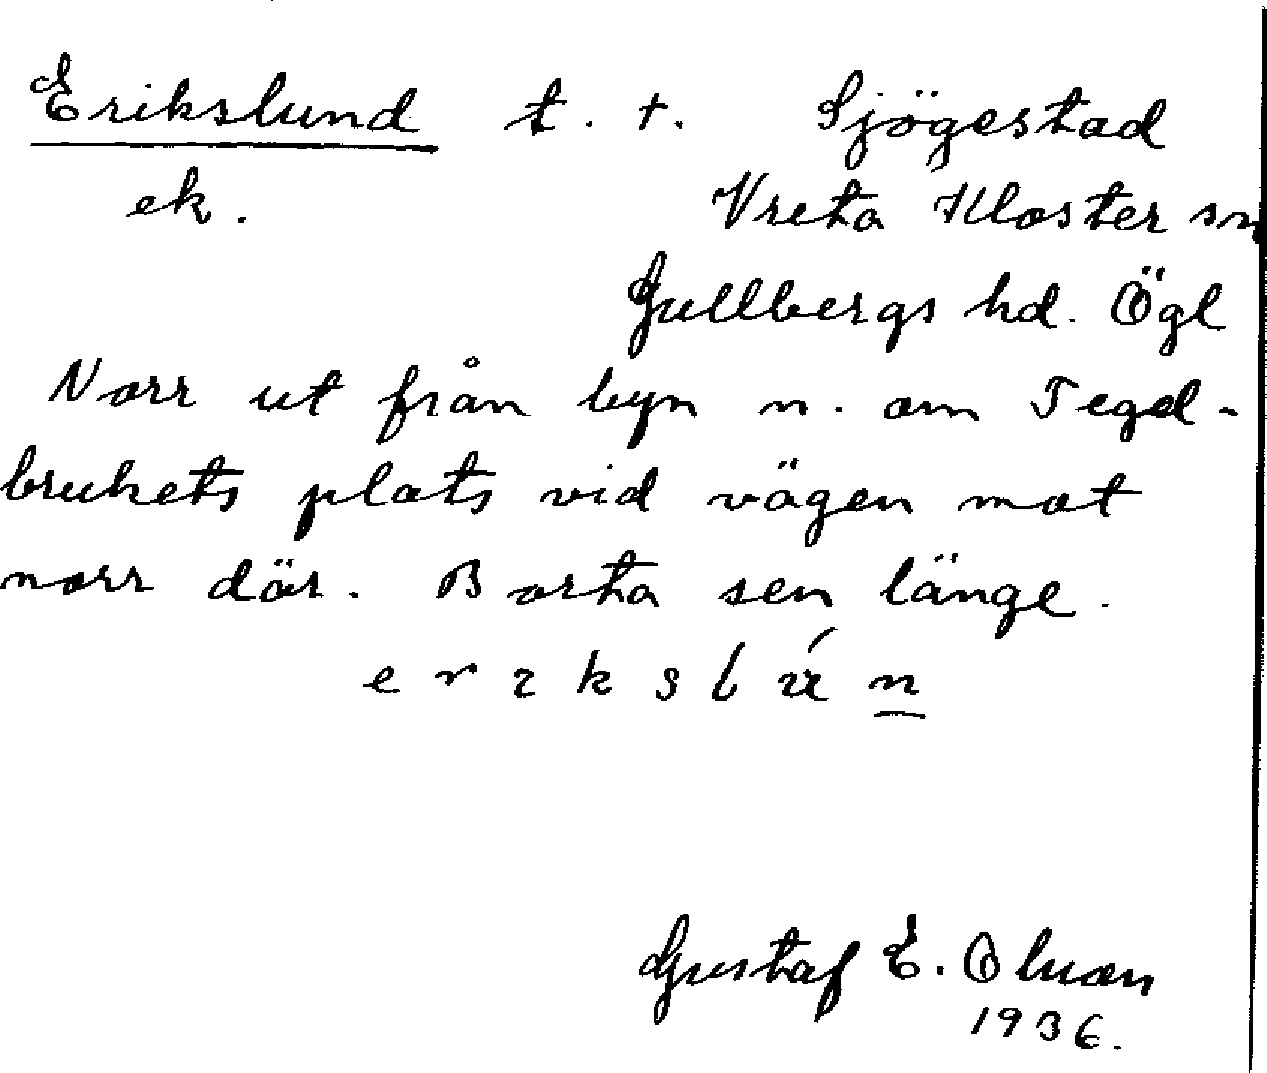 Erikslund t. †. Sjögestad
ek. Vreta Kloster sn
Gullbergs hd. Ögl
Norr ut från byn n. om Tegel-
brukets plats vid vägen mot
norr där. Borta sen länge.
erikslún
Gustaf E. Olsson
1936.